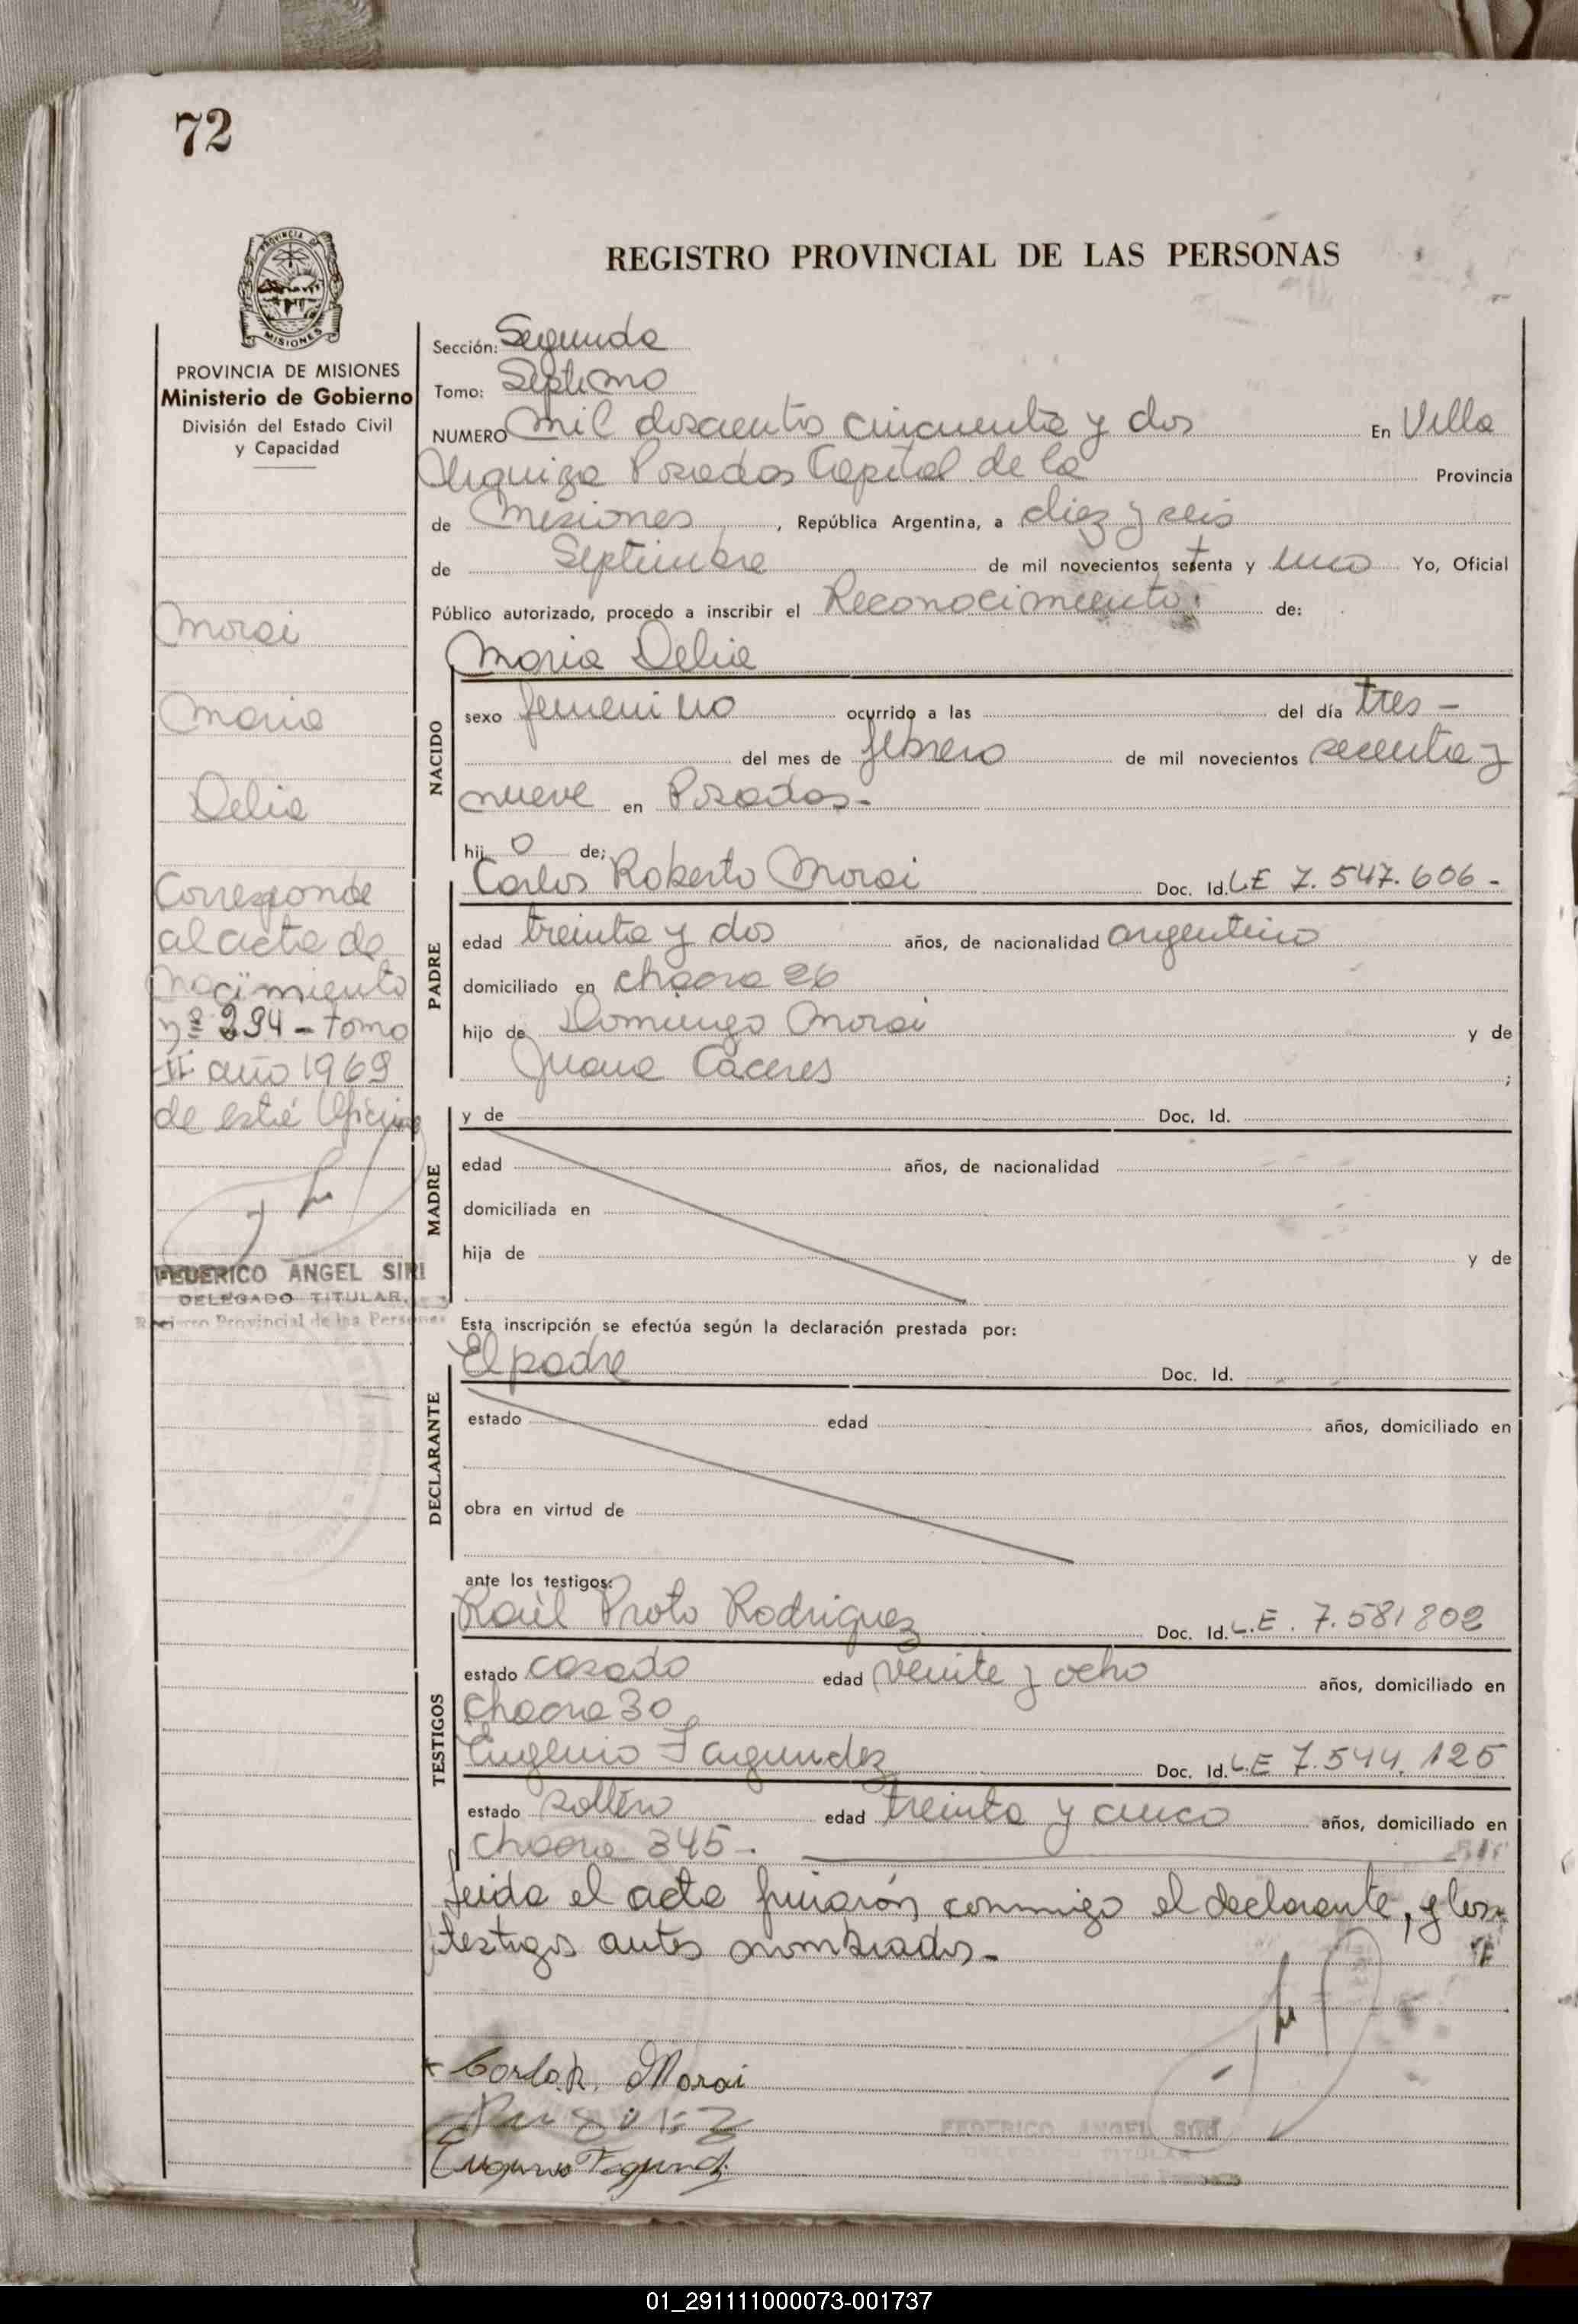 72
PROVINCIA DE
MISIONES
REGISTRO PROVINCIAL DE LAS PERSONAS
PROVINCIA DE MISIONES
Ministerio de Gobierno
División del Estado Civil
y Capacidad
Morai
Maria
Delia
Corresponde
al acta de
nacimiento
nº 294 - tomo
II año 1969
de esta Oficina
FEDERICO ANGEL SIRI
DELEGADO TITULAR
Registro Provincial de las Personas
Sección: Segunda
Tomo: Septimo
NUMERO Mil doscientos cincuenta y dos En Villa
Urquiza Posadas Capital de la Provincia
de Misiones, República Argentina, a diez y seis
de Septiembre de mil novecientos setenta y uno Yo, Oficial
Público autorizado, procedo a inscribir el Reconocimiento de:
Maria Delia
NACIDO
sexo femenino ocurrido a las del día tres -
del mes de febrero de mil novecientos sesenta y
nueve en Posadas-
hij o de;
PADRE
Carlos Roberto Morai Doc. Id. LE 7.547.606 -
edad treinta y dos años, de nacionalidad argentino
domiciliado en chacra 26
hijo de Domingo Morai y de
Juana Caceres ;
MADRE
y de Doc. Id.
edad años, de nacionalidad
domiciliada en
hija de y de
Esta inscripción se efectúa según la declaración prestada por:
DECLARANTE
El padre Doc. Id.
estado edad años, domiciliado en
obra en virtud de
ante los testigos:
TESTIGOS
Raúl Proto Rodriguez Doc. Id. L.E. 7.581802
estado casado edad veinte y ocho años, domiciliado en
chacra 30
Eugenio Fagundez Doc. Id. LE 7.544.125
estado soltero edad treinta y cinco años, domiciliado en
chacra 345 -
Leida el acta firmarón conmigo el declarante, y los
testigos antes nombrados-
Carlos R. Morai
Eugenio Fagundez
FEDERICO ANGEL SIRI
01_291111000073-001737